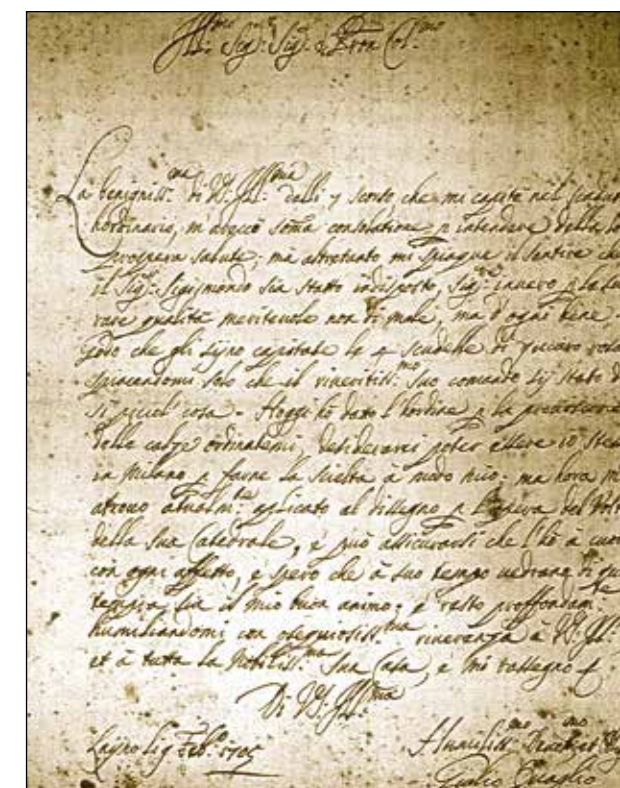 Ill.mo Sig.r Sig.r e Pron Col.mo
La benigniss.ma di V.S. Ill.ma delli 7 scorso che mi capitò nel
hordinario, m'arecò soma consolatione p intendere della
prospera salute; ma altretanto mi spiaque il sentire che
il Sig.r Sigismondo sia statto indisposto, Sig.re invero p le sue
rare qualità meritevole non di male, ma d'ogni bene.
Godo che gli sijno capitate le 4 scudelle di zucaro rosa
spiacendomi solo che il rineritiss.mo suo comando sij stato
sì picciol cosa. Hoggi hò dato l'hordine p la
delle calze ordinatemi, desiderarei poter essere io
in Milano p farne la scielta à modo mio; ma hora mi
atrovo atualm.te aplicato al dissegno p l'opera del
della sua Catedrale, e può assicurarsi che l'hò à cuore
con ogni affetto, e spero che à suo tempo vedrano di
tempra sia il mio buon animo; e resto proffondam.te
humiliandomi con ossequiosiss.ma riverenza à V.S. Ill.
et à tutta la Nobiliss.ma Sua Casa, e mi rassegno
Di V.S. Ill.ma
Layno li 9 Feb.o 1705
Humiliss.mo
Giulio Quaglio